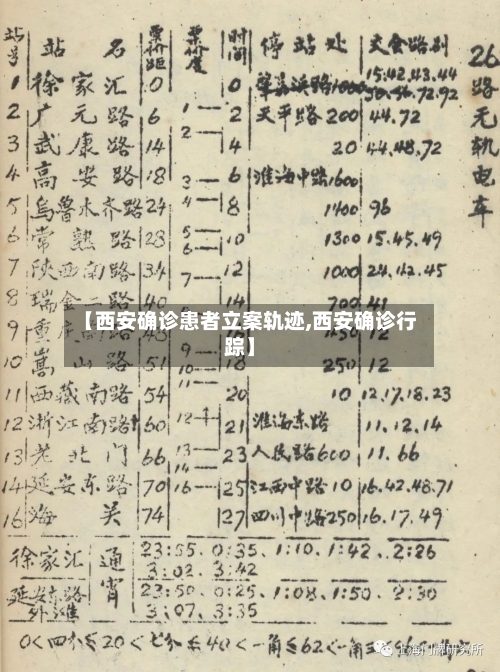 站号 站名 票价距 票价度 时间 停站处 交会路别
26路无轨电车
1 徐家汇 0 0 肇嘉浜路1000 15.42.43.44
50.56.72.92
2 广元路 6 1 2 天平路200 44.72
3 武康路 14 2 4 20 44.48.72
4 高安路 18 3 6 淮海中路1600
5 乌鲁木齐路 24 4 8 1400 96
6 常熟路 28 5 10 1300 15.45.49
7 陕西南路 34 7 12 1000 24.42.45
8 瑞金二路 40 14 700 41
【西安确诊患者立案轨迹,西安确诊行
踪】
9 重庆 12
10 嵩山路 51 18 250 12
11 西藏南路 54 20 10 12.17.18.23
12 浙江南路 60 12 21 淮海东路 11.12.14
13 老北门 66 13 14 23 人民路600 11.66
14 延安东路 70 16 25 江西中路10 16.42.48.71
16 海关 74 27 四川中路250 16.17.49
徐家汇 通宵 23:55. 0:35. 1:10. 1:42. 2:26
3:02. 3:42
延安东路外滩 23:50. 0:25. 1:08. 1:50. 2:30
3:07. 3:35
0<四分≤20<七分≤40<一角≤62<一角三
上海门牌研究所